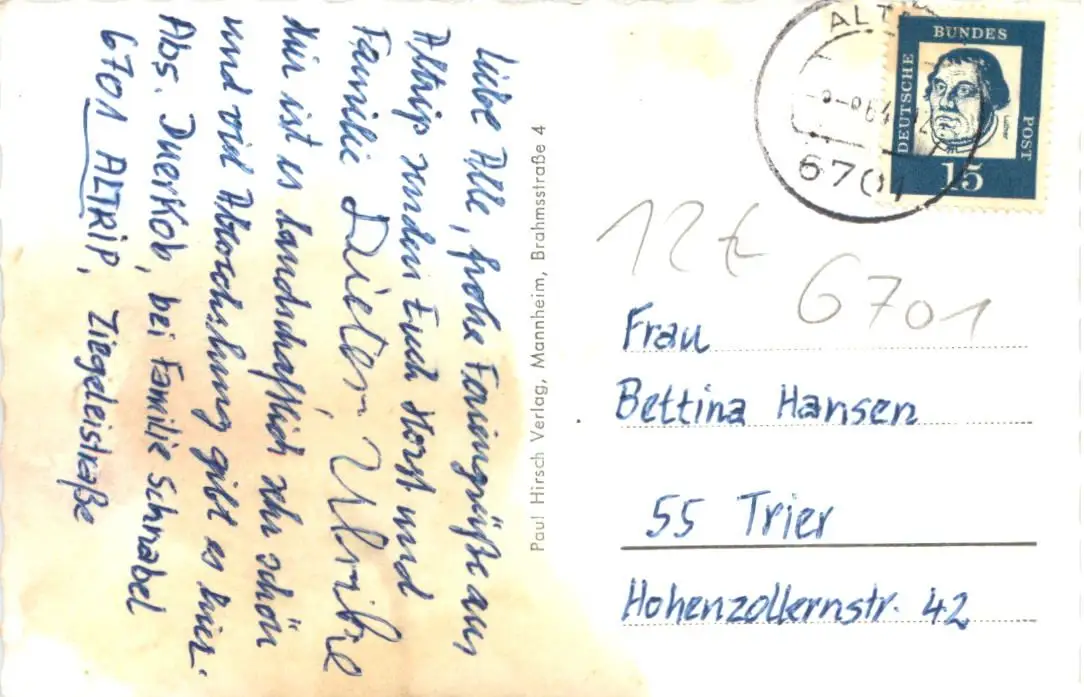 Liebe Alle, frohe Feriengrüße aus
Altrip senden Euch Horst und
Familie Dieter, Ulrike
Hir ist es landschaftlich sehr schön
und viel Abwechslung gibt es hier.
Abs. Duerkob, bei Familie Schnabel
6701 ALTRIP, Ziegeleistraße
Paul Hirsch Verlag, Mannheim, Brahmsstraße 4
ALTR
6701
DEUTSCHE
BUNDES
POST
Luther
15
12 
6701
Frau
Bettina Hansen
55 Trier
Hohenzollernstr. 42